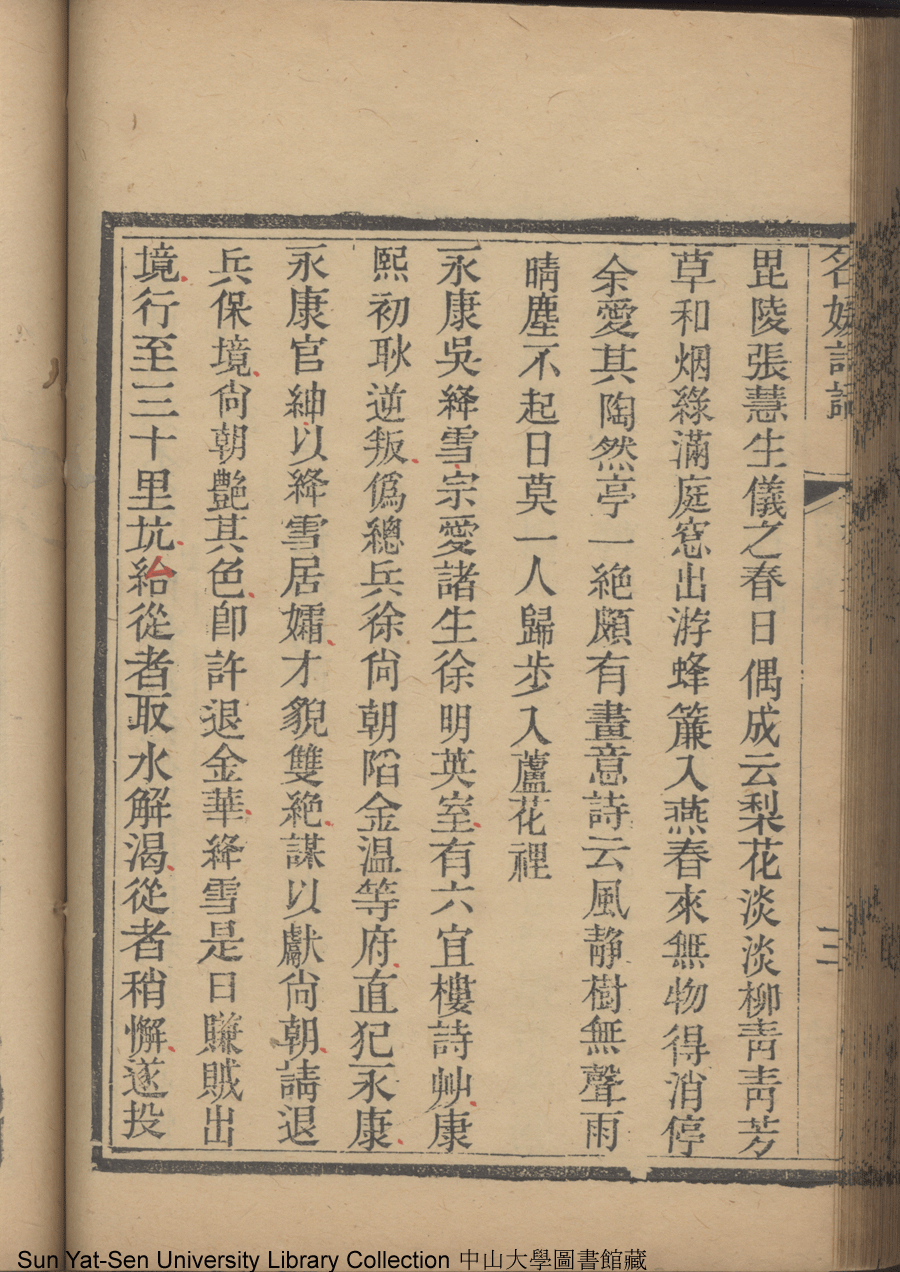 名媛詩話
三
毘陵張慧生儀之春日偶成云梨花淡淡柳靑靑芳
草和烟綠滿庭窓出游蜂簾入燕春來無物得消停
余愛其陶然亭一絕頗有畫意詩云風靜樹無聲雨
晴塵不起日莫一人歸步入蘆花裡
永康吳絳雪宗愛諸生徐明英室有六宜樓詩艸康
熙初耿逆叛僞總兵徐尙朝陷金温等府直犯永康
永康官紳以絳雪居孀才貌雙絕謀以獻尙朝請退
兵保境尙朝艷其色卽許退金華絳雪是日賺賊出
境行至三十里坑紿從者取水解渴從者稍懈遂投
Sun Yat-Sen University Library Collection 中山大學圖書館藏